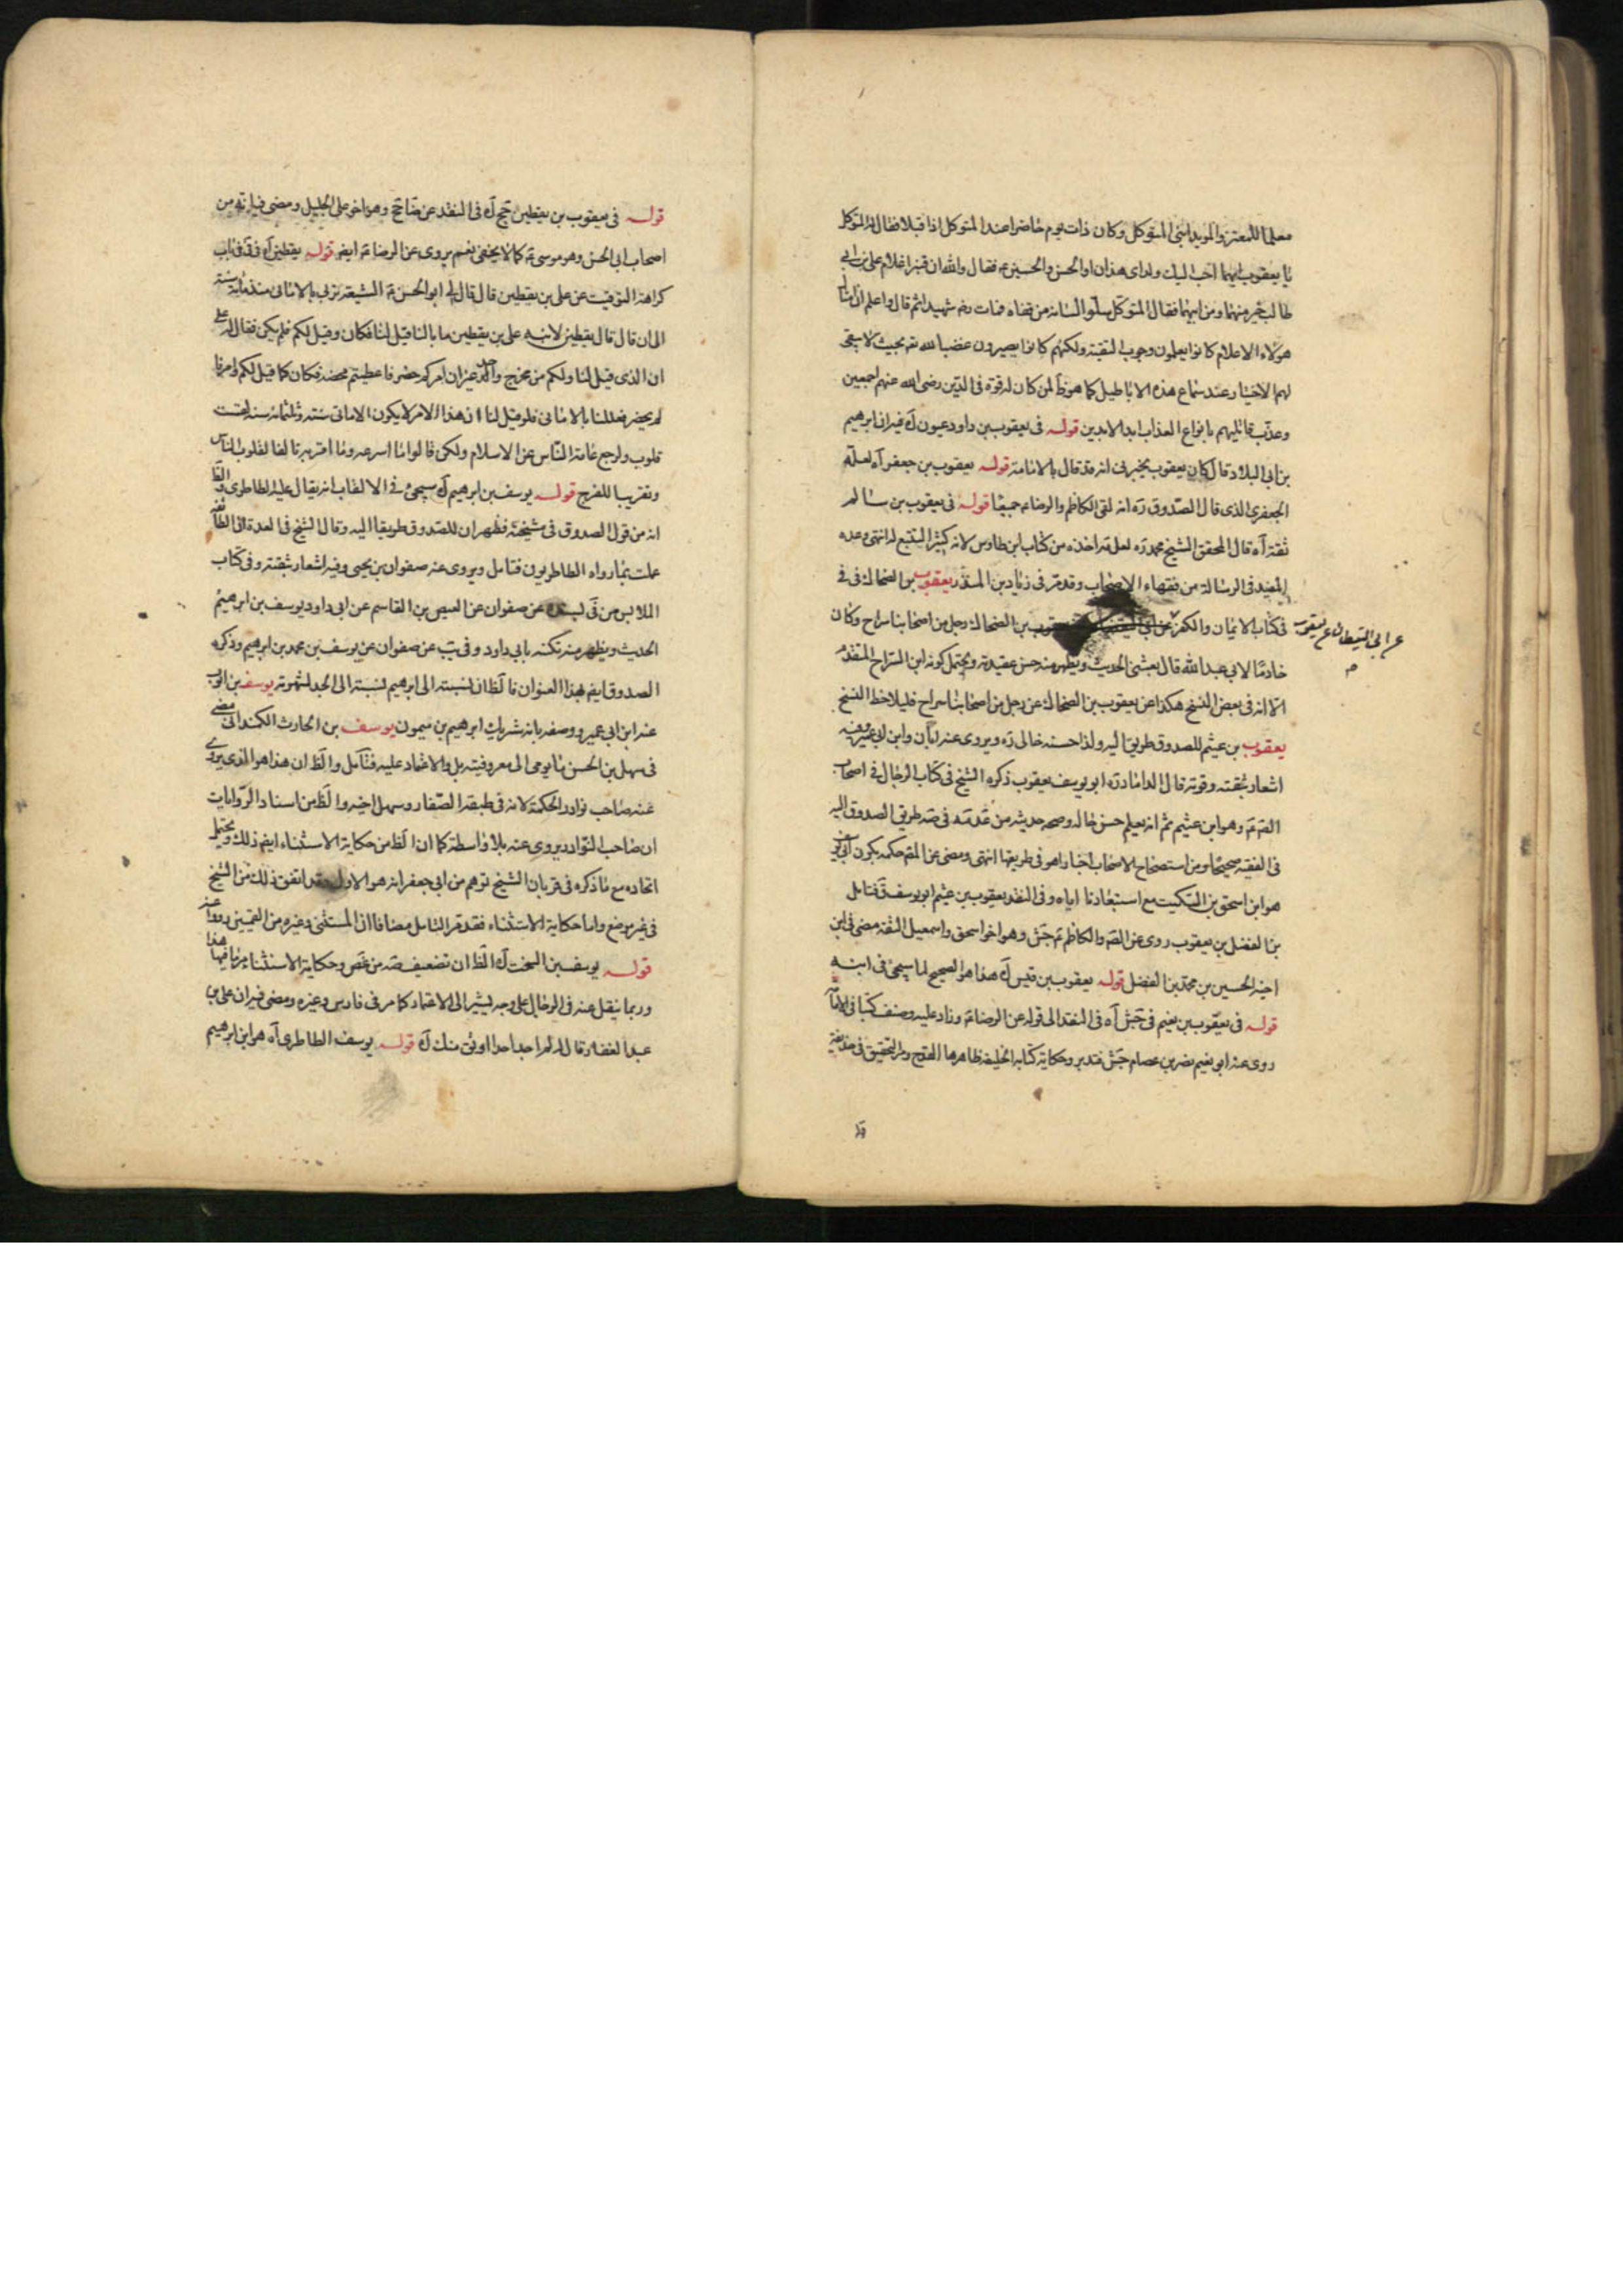 معلما للمعتز والمويد ابنی المتوكل وكان ذات يوم حاضرا عند المتوكل اذا قبلا فقال له المتوكل
يا يعقوب ايهما احب اليك ولدای هذان او الحسن والحسين ع فقال والله ان قنبرا غلام علی بن ابی
طالب خير منهما ومن ابيهما فقال المتوكل سلّوا لسانه من قفاه فمات ره شهيدا ثم قال واعلم ان امثال
هولاء الاعلام كانوا يعلمون وجوب التقية ولكنهم كانوا يصيرون غضبا لله تع بحيث لا يبقی
لهم الاختيار عند سماع هذه الاباطيل كما هو ظ لمن كان له قوة فی الدين رضی الله عنهم اجمعين
وعذّب قاتليهم بانواع العذاب ابد الابدين قوله فی يعقوب بن داود عيون ك فيه ان ابرهيم
بن ابی البلاد قال كان يعقوب يخبرنی انه قد قال بالامامة قوله يعقوب بن جعفر آه لعله
الجعفری الذی قال الصّدوق ره انه لقی الكاظم والرضا ع جميعًا قوله فی يعقوب بن سالم
ثقة آه قال المحقق الشيخ محمد ره لعل مه اخذه من كتاب ابن طاوس لانه كثير التتبع له انتهی وعده
المفيد فی الرسالة من فقهاء الاصحاب وقد مر فی زياد بن المنذر يعقوب بن الضحاك فی فی
فی كتاب الايمان والكفر يعقوب بن الضحاك رجل من اصحابنا سراج وكان
عن ابی اليقظان عن يعقوب
م
خادمًا لابی عبد الله قال بعثنی الحديث ويظهر منه حسن عقيدته ويحتمل كونه ابن السّراج المتقدم
الّا انه فی بعض النسخ هكذا عن يعقوب بن الضحاك عن رجل من اصحابنا سراج فليلاحظ النسخ
يعقوب بن عثيم للصدوق طريق اليه ولذا حسنه خالی ره ويروی عنه ابان وابن ابی عمير وفيه
اشعار بثقته وقوته قال الداماد ره ابو يوسف يعقوب ذكره الشيخ فی كتاب الرجال فی اصحاب
الصّ ع وهو ابن عثيم ثم انه يعلم حسن حاله وصحه حديثه من عده مه فی صه طريق الصدوق اليه
فی الفقيه صحيحًا ومن استصحاح الاصحاب اخبارا هو فی طريقها انتهی ومضی عن المص حكمه بكون
هو ابن اسحق بن السّكيت مع استبعادنا اياه وفی النقد يعقوب بن عثيم ابو يوسف ق فتامل
بن الفضل بن يعقوب روی عن الصّ والكاظم ع جش وهو اخو اسحق واسمعيل الثقة مضی فی ابن
اخيه الحسين بن محمد بن الفضل قوله يعقوب بن قيس ك هذا هو الصحيح لما سيجیء فی ابنه
قوله فی يعقوب بن نعيم فی جش آه فی النقد الی قوله عن الرضا ع وزاد عليه وصنف كتبا فی الامامة
روی عنه ابو نعيم نصر بن عصام جش فتدبر وحكاية كتابه الخليفة ظاهرها القدح ومر التحقيق فی حذيفة
قوله فی يعقوب بن يقطين جخ ك فی النقد عن ضا جخ وهو اخو علی الجليل ومضی فيه انه من
اصحاب ابی الحسن وهو موسی ع كما لا يخفی نعم يروی عن الرضا ع ايض قوله يقطين آه فی باب
كراهة التوقيت عن علی بن يقطين قال قال لی ابو الحسن ع الشيعة تربی بالامانی منذ مائة سنة
الی ان قال قال يقطين لابنه علی بن يقطين ما بالنا قيل لنا فكان وقيل لكم فلم يكن فقال له علی
ان الذی قيل لنا ولكم من مخرج واحد غير ان امركم حضر فاعطيتم محضه فكان كما قيل لكم وامرنا
لم يحضر فعللنا بالامانی فلو قيل لنا ان هذا الامر لا يكون الا مائی سنة وثلثمائة سنة لقست
قلوب ولرجع عامة النّاس عن الاسلام ولكن قالوا ما اسرعه وما اقربه تالفا لقلوب الناس
وتقريبا للفرج قوله يوسف بن ابرهيم ك سيجیء فی الالقاب انه يقال عليه الطاطری والظ
انه من قول الصدوق فی مشيخته فظهر ان للصدوق طريقا اليه وقال الشيخ فی العدة ان الطائفة
عملت بما رواه الطاطريون فتامل ويروی عنه صفوان بن يحيی وفيه اشعار بثقته وفی كتاب
الملابس من فی بسنده عن صفوان عن العيص بن القاسم عن ابی داود يوسف بن ابرهيم
الحديث ويظهر منه تكنيه بابی داود وفی يب عن صفوان عن يوسف بن محمد بن ابرهيم وذكره
الصدوق ايض بهذا العنوان فالظ ان نسبته الی ابرهيم لنسبة الی الجد لشهرته يوسف بن ايوب
عنه ابن ابی عمير ووصفه بانه شريك ابرهيم بن ميمون يوسف بن الحارث الكمندانی مضی
فی سهل بن الحسن ما يومی الی معروفيته بل والاعتماد عليه فتامل والظ ان هذا هو الذی يروی
عنه صاحب نوادر الحكمة لانه فی طبقة الصّفار وسهل اخيه والظ من اسناد الروايات
ان صاحب النوادر يروی عنه بلا واسطة كما ان الظ من حكاية الاستثناء ايض ذلك ويحتمل
اتحاده مع ما ذكره فی قر بان الشيخ توهم من ابی جعفر انه هو الاول وقد اتفق ذلك من الشيخ
فی غير موضع واما حكاية الاستثناء فقد مر التامل مضافا ان المستثنی وغيره من القميين رووا عنه
قوله يوسف بن السخت ك الظ ان تضعيف صه من غض وحكاية الاستثناء مر ما فيها هذا
وربما ينقل عنه فی الرجال علی وجه يشير الی الاعتماد كما مر فی فارس وغيره ومضی فيه ان علی بن
عبد الغفار قال له لم اجد احدا اوثق منك ك قوله يوسف الطاطری آه هو ابن ابرهيم